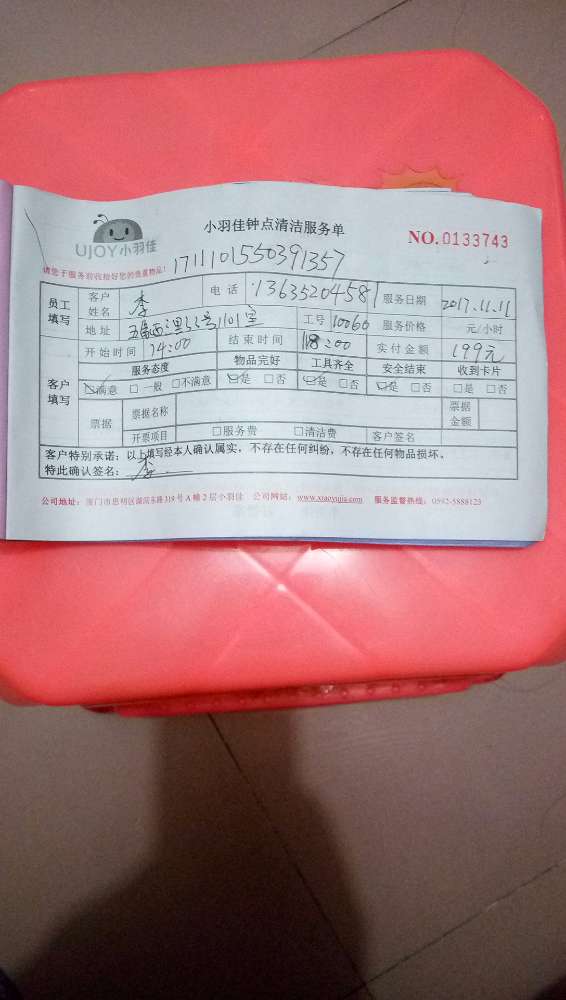 小羽佳钟点清洁服务单
UJOY小羽佳
NO.0133743
请您于服务前收拾好您的贵重物品！ 1711101550391357
员工填写 客户姓名 李 电话 13635204581 服务日期 2017.11.11
地址 西里33号1101室 工号 10060 服务价格 元/小时
开始时间 14:00 结束时间 18:00 实付金额 199元
客户填写 服务态度 物品完好 工具齐全 安全结束 收到卡片
☑满意 □一般 □不满意 ☑是 □否 ☑是 □否 ☑是 □否 □是 □否
票据 票据名称 票据金额
开票项目 □服务费 □清洁费 客户签名
客户特别承诺：以上填写经本人确认属实，不存在任何纠纷，不存在任何物品损坏。
特此确认签名： 李
公司地址：厦门市思明区湖滨东路319号A幢2层小羽佳 公司网站：www.xiaoyujia.com 服务监督热线：0592-5888123